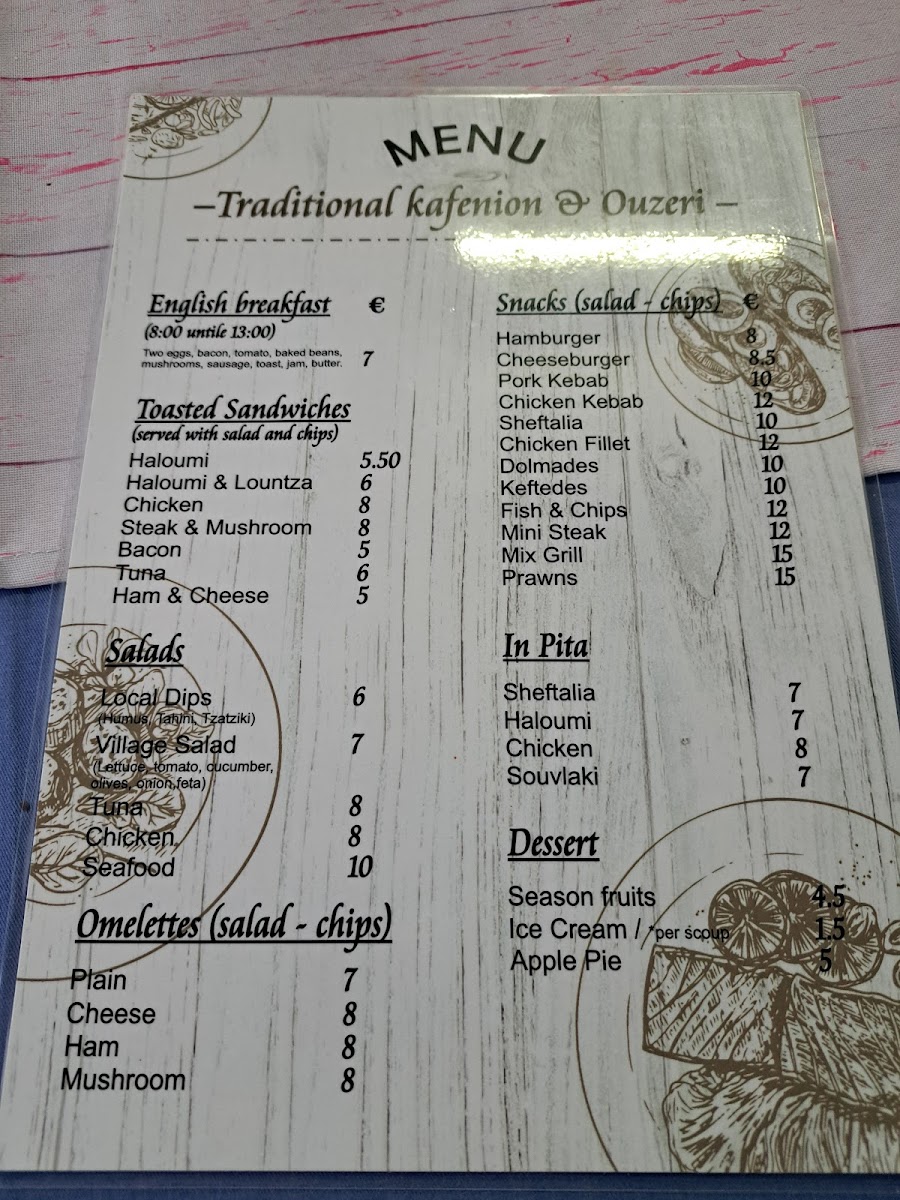 MENU
–Traditional kafenion & Ouzeri –
English breakfast €
(8:00 untile 13:00)
Two eggs, bacon, tomato, baked beans, 7
mushrooms, sausage, toast, jam, butter.
Toasted Sandwiches
(served with salad and chips)
Haloumi 5.50
Haloumi & Lountza 6
Chicken 8
Steak & Mushroom 8
Bacon 5
Tuna 6
Ham & Cheese 5
Salads
Local Dips 6
(Humus, Tahini, Tzatziki)
Village Salad 7
(Lettuce, tomato, cucumber,
olives, onion,feta)
Tuna 8
Chicken 8
Seafood 10
Omelettes (salad - chips)
Plain 7
Cheese 8
Ham 8
Mushroom 8
Snacks (salad - chips) €
Hamburger 8
Cheeseburger 8.5
Pork Kebab 10
Chicken Kebab 12
Sheftalia 10
Chicken Fillet 12
Dolmades 10
Keftedes 10
Fish & Chips 12
Mini Steak 12
Mix Grill 15
Prawns 15
In Pita
Sheftalia 7
Haloumi 7
Chicken 8
Souvlaki 7
Dessert
Season fruits 4.5
Ice Cream / *per scoup 1.5
Apple Pie 5